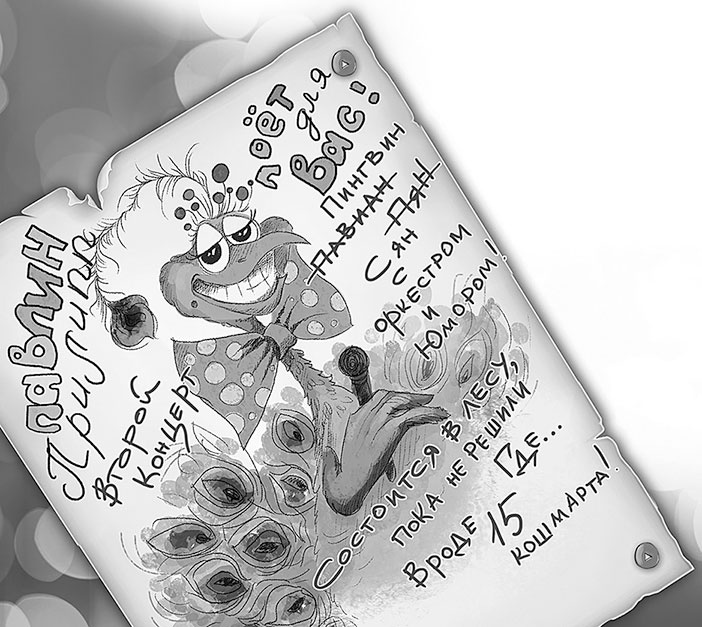 ПАВЛИН
Прилипп
Второй
Концерт
поёт
для
Вас!
Пингвин
ПАВИАН ПЯН
Сян
с
оркестром
и
Юмором!
Состоится в лесу,
пока не решили
Где...
Вроде 15
кошмарта!